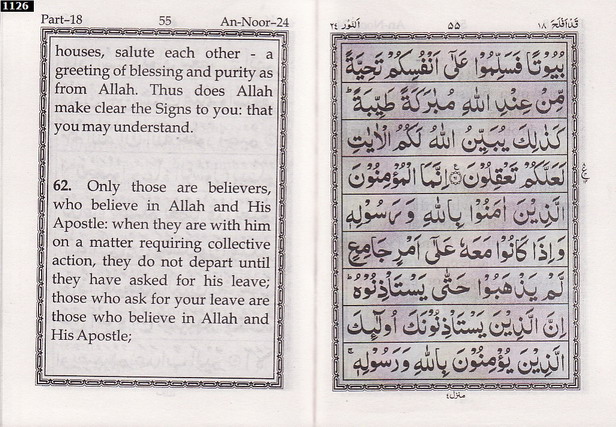 1126
Part-18 55 An-Noor-24
houses, salute each other - a
greeting of blessing and purity as
from Allah. Thus does Allah
make clear the Signs to you: that
you may understand.
62. Only those are believers,
who believe in Allah and His
Apostle: when they are with him
on a matter requiring collective
action, they do not depart until
they have asked for his leave;
those who ask for your leave are
those who believe in Allah and
His Apostle;
قد افلح ١٨ ٥٥ النور ٢٤
بُيُوتًا فَسَلِّمُوْا عَلٰٓى اَنْفُسِكُمْ تَحِيَّةً
مِّنْ عِنْدِ اللّٰهِ مُبٰرَكَةً طَيِّبَةً ؕ
كَذٰلِكَ يُبَيِّنُ اللّٰهُ لَكُمُ الْاٰيٰتِ
لَعَلَّكُمْ تَعْقِلُوْنَ ۝ اِنَّمَا الْمُؤْمِنُوْنَ
الَّذِيْنَ اٰمَنُوْا بِاللّٰهِ وَرَسُوْلِهٖ
وَاِذَا كَانُوْا مَعَهٗ عَلٰٓى اَمْرٍ جَامِعٍ
لَّمْ يَذْهَبُوْا حَتّٰى يَسْتَاْذِنُوْهُ ؕ
اِنَّ الَّذِيْنَ يَسْتَاْذِنُوْنَكَ اُولٰٓئِكَ
الَّذِيْنَ يُؤْمِنُوْنَ بِاللّٰهِ وَرَسُوْلِهٖ ۚ
منزل ٤